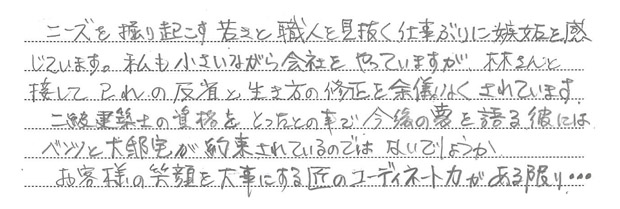 ニーズを掘り起こす若さと職人を見抜く仕事ぶりに嫉妬を感
じています。私も小さいながら会社をやっていますが、林さんと
接して の反省と生き方の修正を余儀なくされています。
二級建築士の資格をとったとの事で今後の夢を語る彼には
ベンツと大邸宅が約束されているのではないでしょうか
お客様の笑顔を大事にする匠のコーディネート力がある限り…